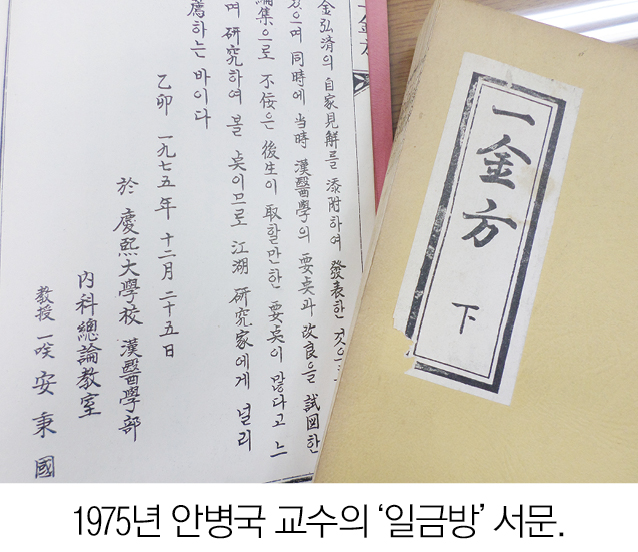 金弘済의 自家見解를 添附하여 發表한 것으
同時에 当時 漢醫學의 要奌과 改良을 試図한
編集으로 不佞은 後生이 取할만한 要奌이 많다고 느
며 研究하여 볼 奌이므로 江湖 研究家에게 널리
薦하는 바이다
乙卯 一九七五年 十二月 二十五日
於 慶熙大學校 漢醫學部
內科總論教室
教授 一咲 安秉國
一金方 下
1975년 안병국 교수의 ‘일금방’ 서문.